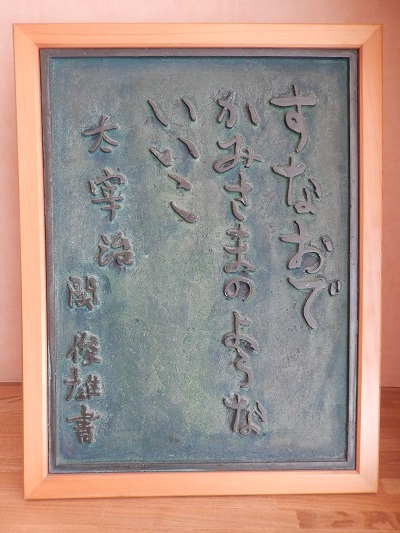 すなおで
かみさまのような
いいこ
太宰治 関俊雄書